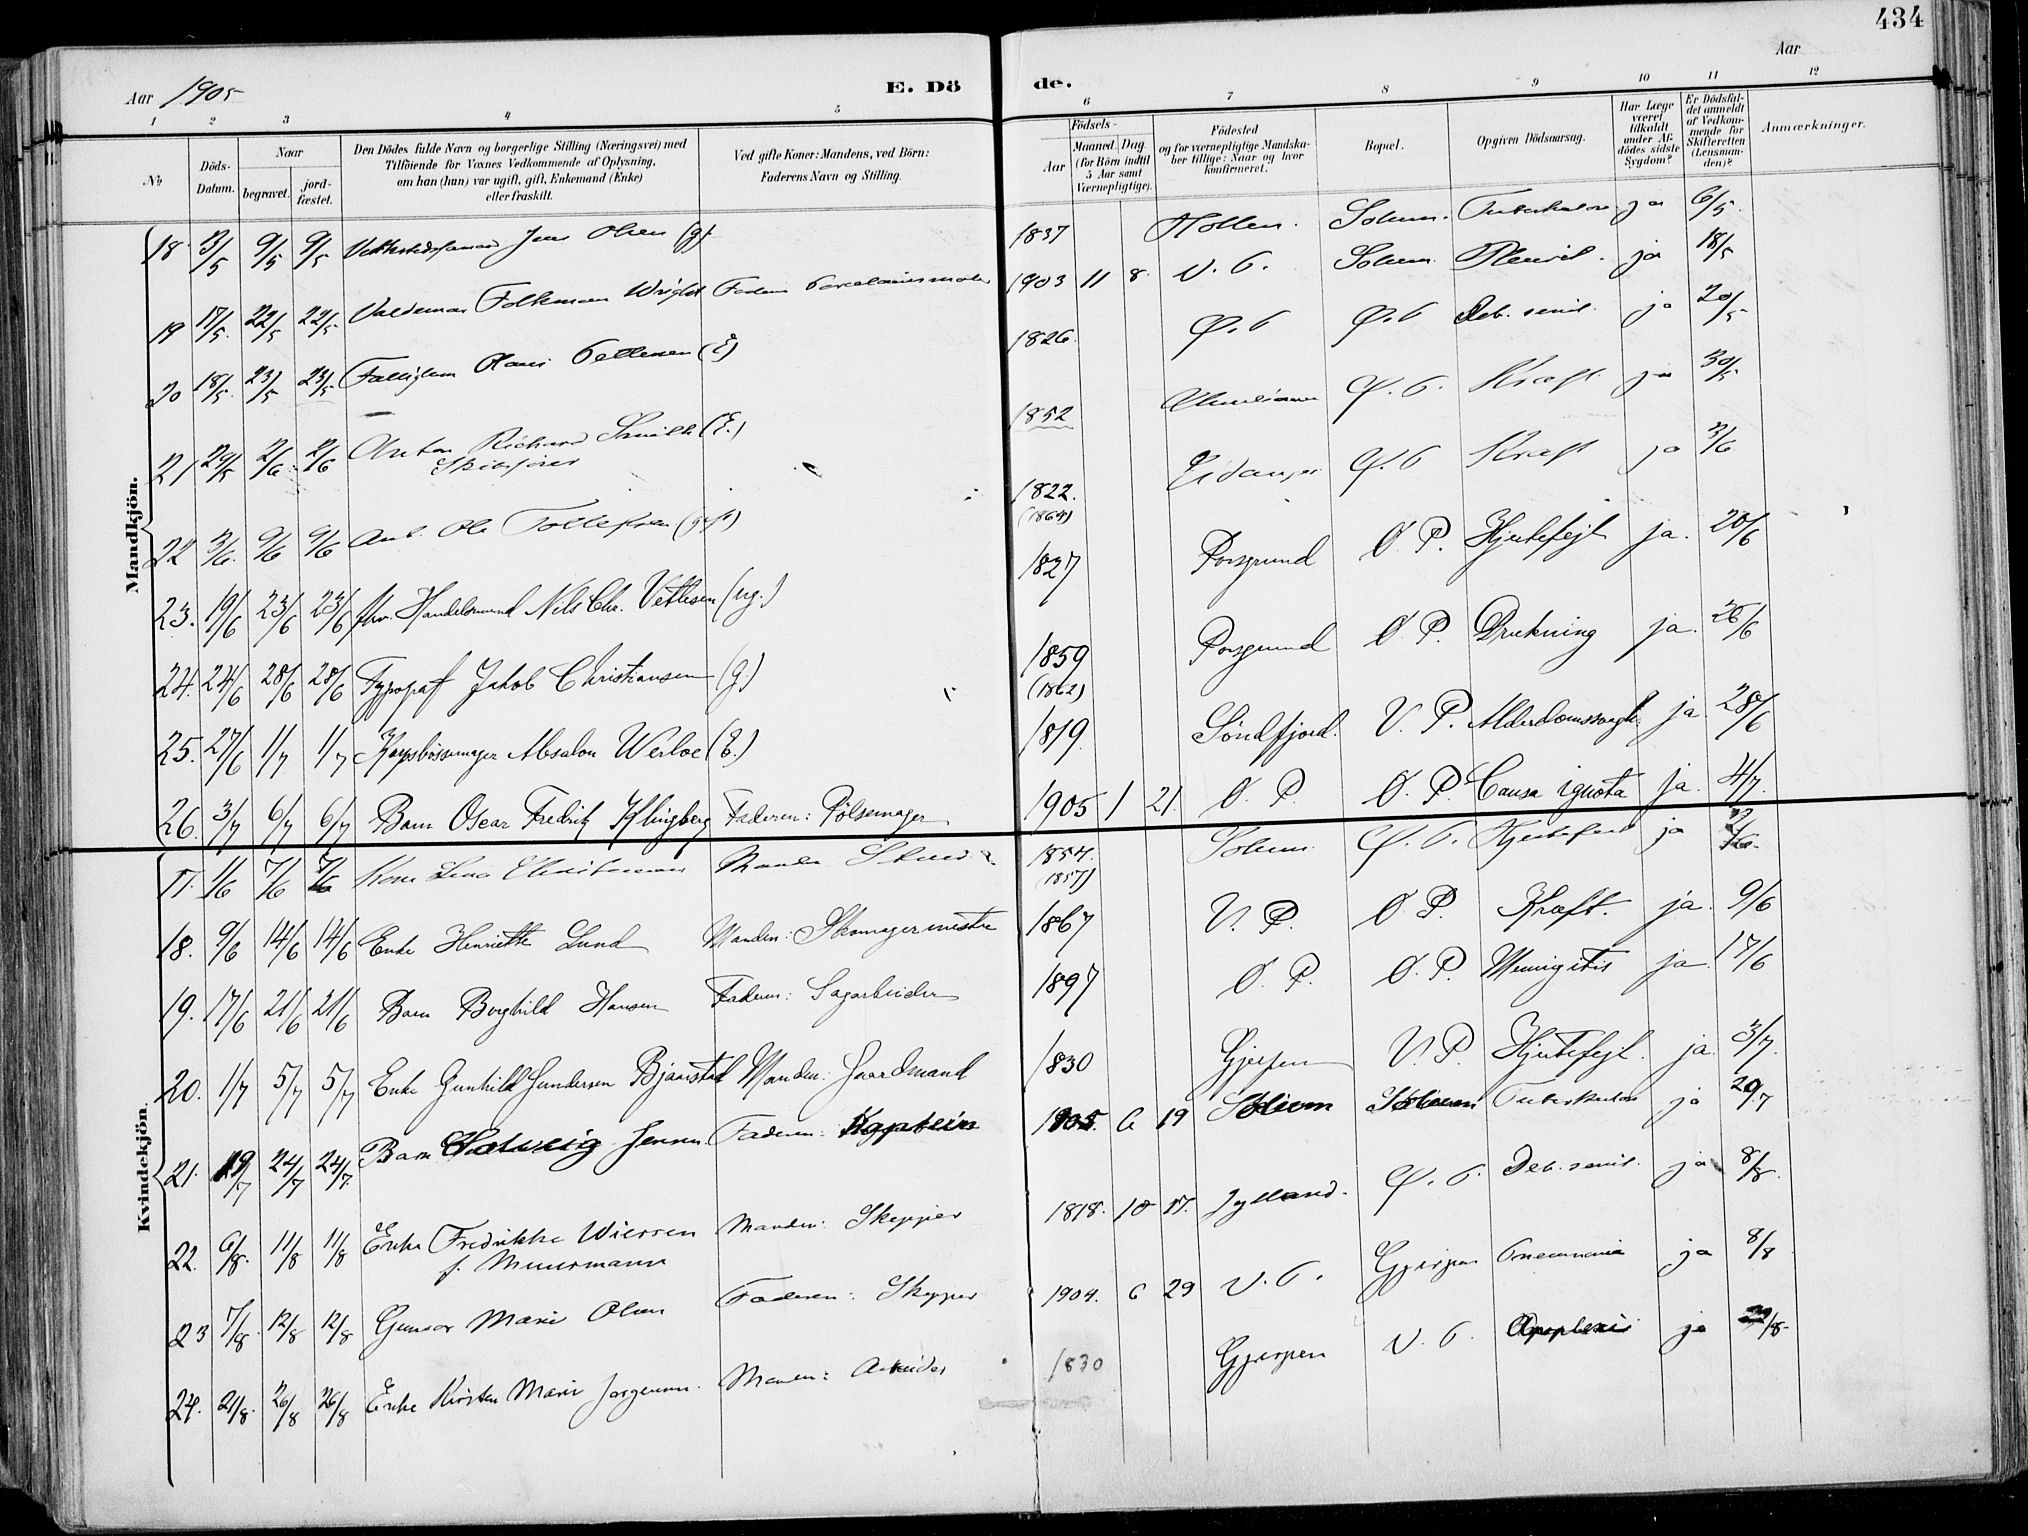 434
Aar 1905
E. Dö
de.
Aar
1 2 3 4 5 6 7 8 9 10 11 12
№
Döds-
Datum.
Naar
begravet.
jord-
fæstet.
Den Dödes fulde Navn og borgerlige Stilling (Næringsvei) med
Tilföiende for Voxnes Vedkommende af Oplysning,
om han (hun) var ugift, gift, Enkemand (Enke)
eller fraskilt.
Ved gifte Koner: Mandens, ved Börn:
Faderens Navn og Stilling.
Födsels-
Aar
Maaned. Dag.
(for Börn indtil
5 Aar samt
Værnepligtige).
Födested
og for værnepligtige Mandska-
ber tillige: Naar og hvor
konfirmeret.
Bopæl.
Opgiven Dödsaarsag.
Har Læge
været
tilkaldt
under Af-
dödes sidste
Sygdom?
Er Dödsfal-
det anmeldt
af Vedkom-
mende for
Skifteretten
(Lensman-
den)?
Anmærkninger.
Mandkjön.
18 3/5 9/5 9/5 Jens Olsen (g) 1837 Holten. Solum. Tuberkulose ja 6/5
19 17/5 22/5 22/5 Valdemar Folkman Wright Faderen Porcelainsmaler 1903 11 8 V. P. Solum Pleurit. ja 18/5
20 18/5 23/5 23/5 Fattiglem Hans Pettersen (E) 1826 Ø. P Ø. P Deb. senil. ja 20/5
21 29/5 2/6 2/6 Anton Richard Smith (E.) 1852 Ø. P. Kræft ja 30/5
Skibsfører
22 3/6 9/6 9/6 Ole Tollefsen (gift) 1822. Eidanger Ø. P Kræft ja 3/6
(1864)
23. 19/6 23/6 23/6 fhv. Handelsmand Nils Chr. Vettesen (ug.) 1827 Porsgrund Ø. P. Hjertefejl ja. 20/6
24. 24/6 28/6 28/6 Typograf Jakob Christiansen (g.) 1859 Porsgrund Ø. P. Drukning ja. 26/6
(1862)
25. 27/6 1/7 1/7 Absalon Werloe (E.) 1819. Søndfjord. V. P. Alderdomssvagh. ja 28/6
26. 3/7 6/7 6/7 Barn Oscar Fredrik Klingberg Faderen: Pølsemager 1905 1 21. Ø. P. Ø. P. Causa ignota ja. 4/7.
Kvindekjön.
17. 1/6 7/6 7/6 Kone Lina Manden 1854. Solum Ø. P. ja
(1857)
18. 9/6 14/6 14/6 Enke Henriette Lund Manden: Skomagermester 1867 V. P. Ø. P. Kræft. ja. 9/6
19. 17/6 21/6 21/6 Barn Borghild Hansen Faderen: Sagarbeider 1897 Ø. P. Ø. P. Meningitis ja. 17/6
20. 1/7 5/7 5/7 Enke Gunhild Gundersen Bjaanstad Manden: Gaardmand 1830 Gjerpen V. P. Hjertefejl. ja. 3/7.
21. 19/7 24/7 24/7. Barn Solveig Jensen. Faderen: Kaptein 1905. 6 19 Solum Solum Tuberkulose ja 20/7
22. 6/8. 11/8 11/8 Enke Fredrikke Wiersen Manden: Skipper 1818. 10 17. Jylland. Ø. P. Deb. senil. ja 8/8.
f. Muurmann
23 7/8. 12/8 12/8 Gunvor Marie Olsen Faderen: Skipper 1904. 6 29 V. P. Gjerpen Pneumonia ja 8/8
24. 21/8. 26/8 26/8 Enke Kirsten Marie Jørgensen. Manden: Arbeider 1830 Gjerpen V. P. Apoplexi ja 22/8.